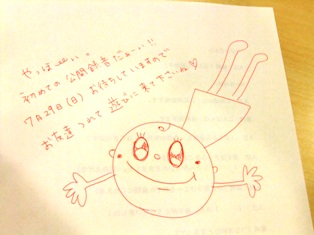 やっほーぃ。
初めての公開録音だよーい!!
7月29日(日)お待ちしていますので
お友達つれて遊びに来て下さいね♡